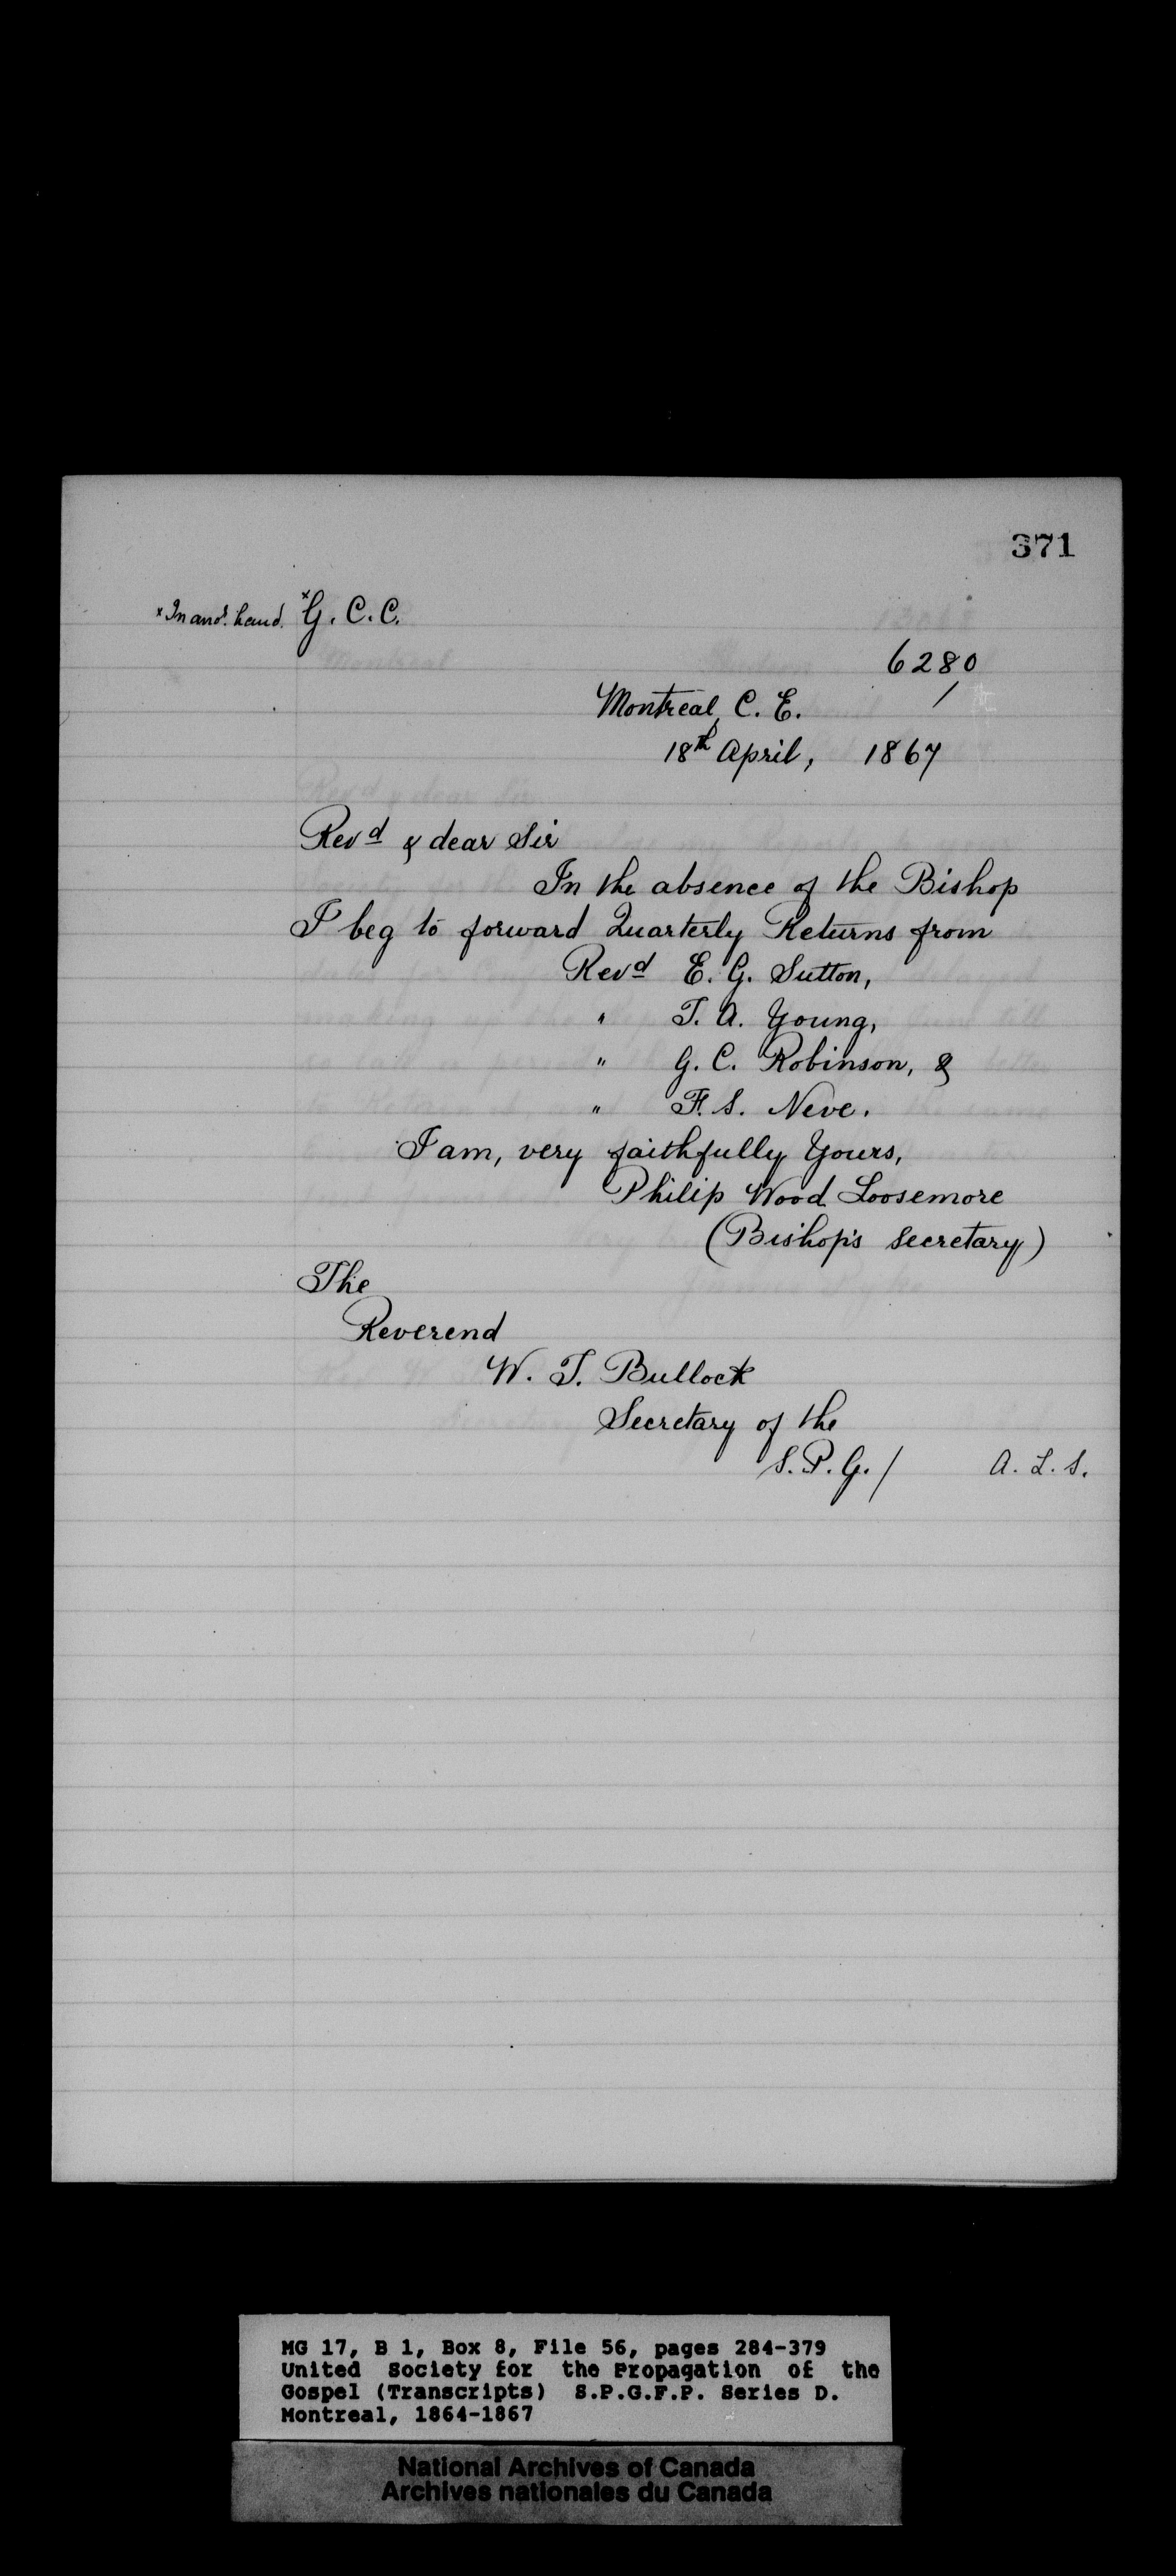 371
x In anor. hand. xG. C. C.
6280
/
Montreal, C. E.
18th April, 1867
Revd & dear Sir
In the absence of the Bishop
I beg to forward Quarterly Returns from
Revd E. G. Sutton,
" T. A. Young,
" G. C. Robinson, &
" F. S. Neve.
I am, very faithfully Yours,
Philip Wood Loosemore
(Bishop's Secretary)
The
Reverend
W. T. Bullock
Secretary of the
S. P. G. / A. L. S.
MG 17, B 1, Box 8, File 56, pages 284-379
United Society for the Propagation of the
Gospel (Transcripts) S.P.G.F.P. Series D.
Montreal, 1864-1867
National Archives of Canada
Archives nationales du Canada